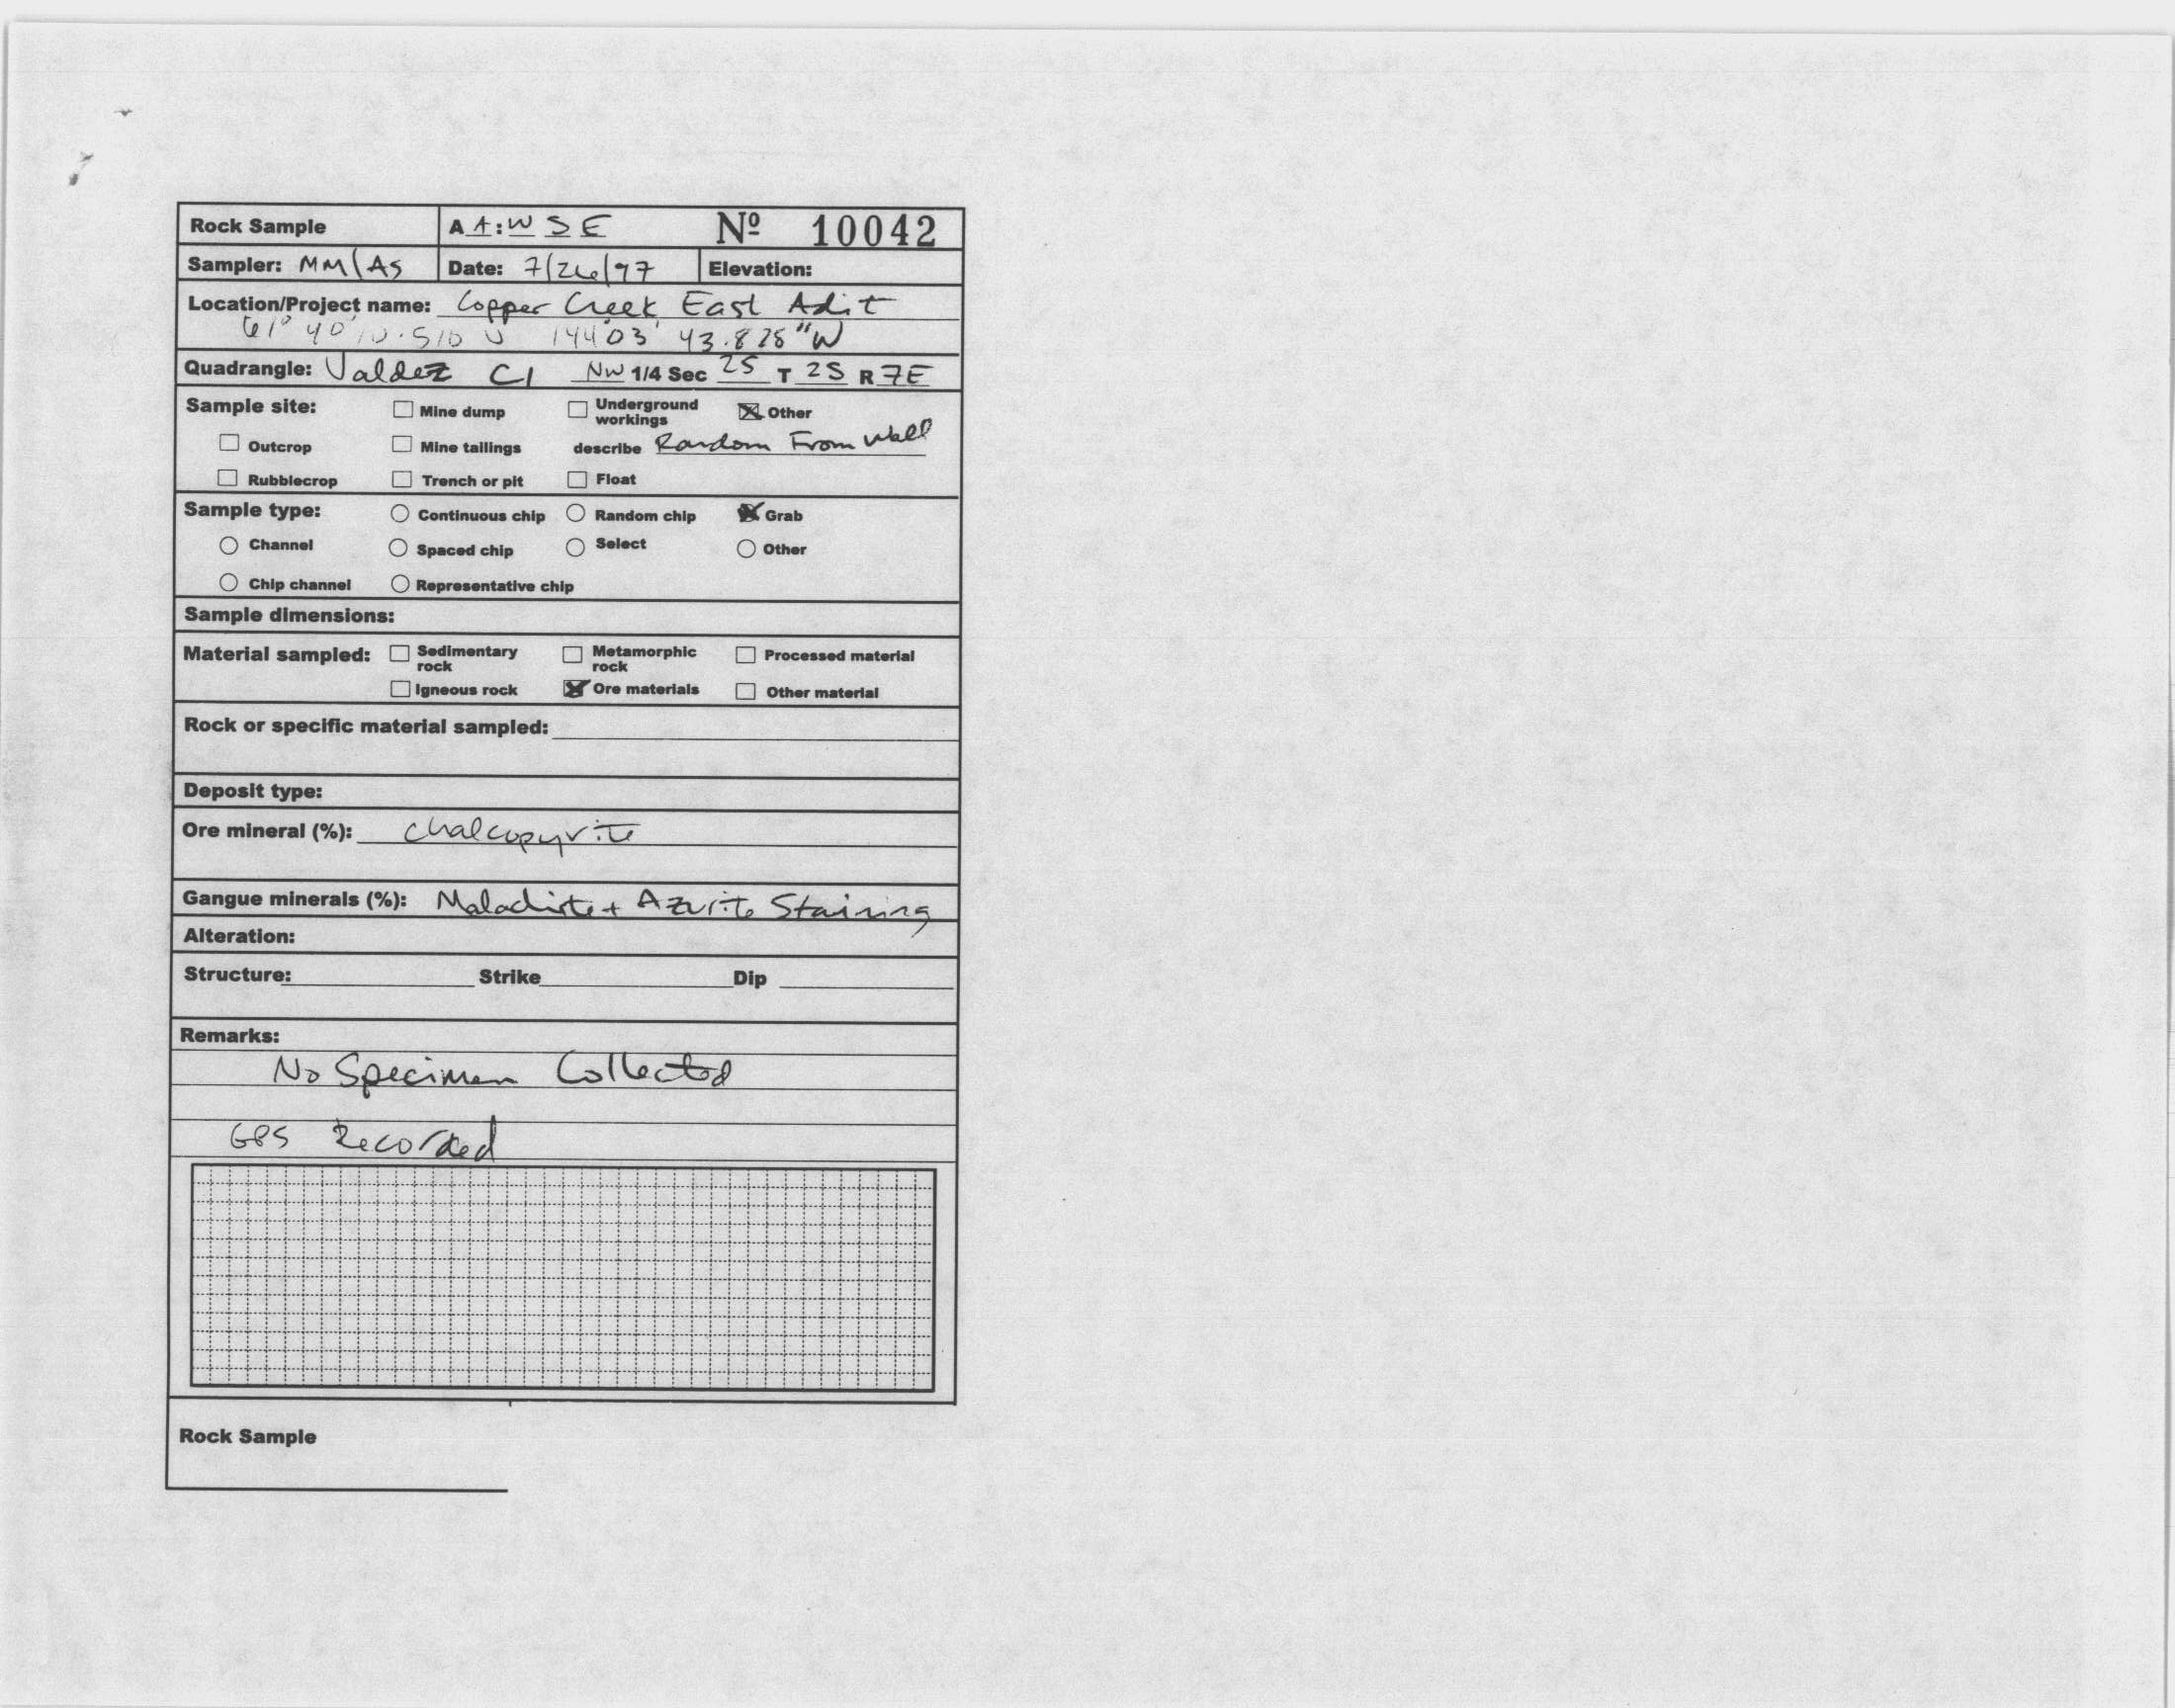 Rock Sample A A:W S E Nº 10042
Sampler: MM/AS Date: 7/26/97 Elevation:
Location/Project name: Copper Creek East Adit
61° 40' 10.510 N 144 03' 43.828"W
Quadrangle: Valdez C1 NW 1/4 Sec 25 T 2S R 7E
Sample site: Mine dump Underground workings Other
Outcrop Mine tailings describe Random From Wall
Rubblecrop Trench or pit Float
Sample type: Continuous chip Random chip Grab
Channel Spaced chip Select Other
Chip channel Representative chip
Sample dimensions:
Material sampled: Sedimentary rock Metamorphic rock Processed material
Igneous rock Ore materials Other material
Rock or specific material sampled:
Deposit type:
Ore mineral (%): Chalcopyrite
Gangue minerals (%): Malachite + Azurite Staining
Alteration:
Structure: Strike Dip
Remarks:
No Specimen Collected
GPS Recorded
Rock Sample